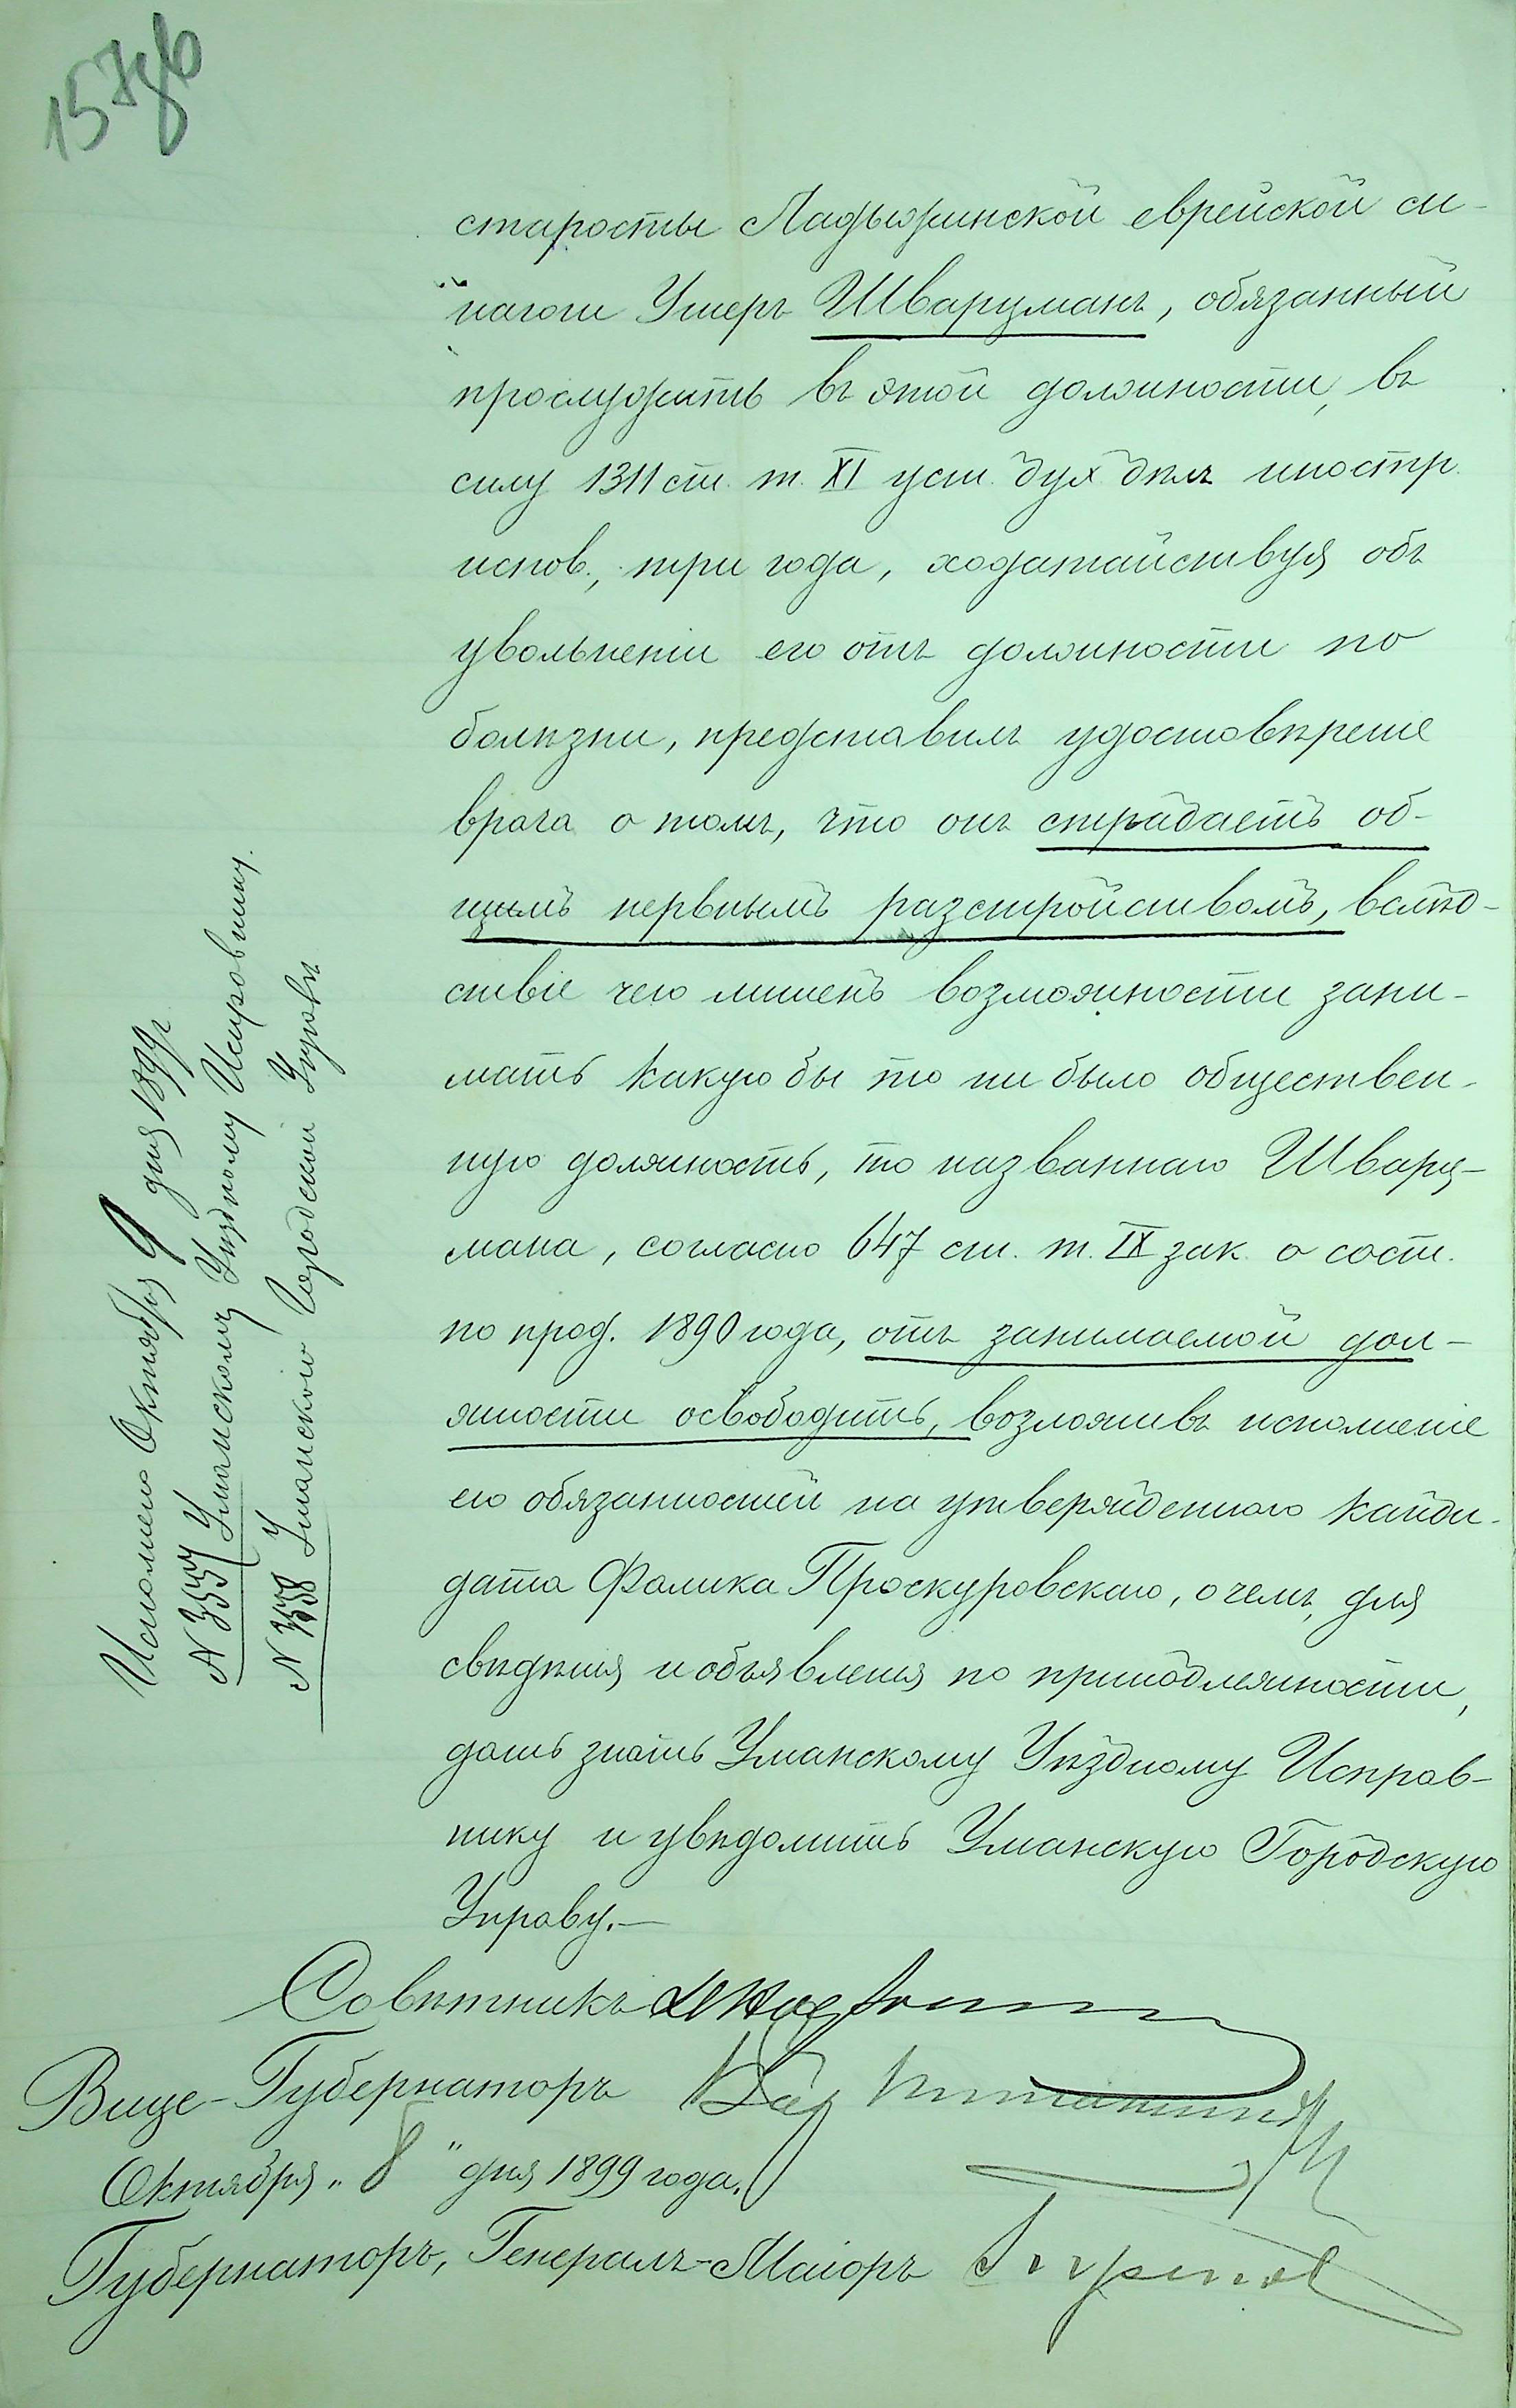 157 об
старосты Ладыжинской еврейской си-
нагоги Ушеръ Шварцманъ, обязанный
прослужить въ этой должности, въ
силу 1311 ст. т. XI уст. дух дѣлъ иностр.
испов., три года, ходатайствуя объ
увольненіи его отъ должности по
болѣзни, представилъ удостовѣреніе
врача о томъ, что онъ страдаетъ об-
щимъ нервнымъ разстройствомъ, вслѣд-
ствіе чего лишенъ возможности зани-
мать какую бы то ни было обществен-
ную должность, то названнаго Шварц-
мана, согласно 647 ст. т. IX зак. о сост.
по прод. 1890 года, отъ занимаемой дол-
жности освободить, возложивъ исполненіе
его обязанностей на утвержденнаго канди-
дата Фалика Проскуровскаго, о чемъ, для
свѣдѣнія и объявленія по принадлежности,
дать знать Уманскому Уѣздному Исправ-
нику и увѣдомить Уманскую Городскую
Управу.—
Совѣтникъ
Вице-Губернаторъ
Октября „8" дня 1899 года.
Губернаторъ, Генералъ-Маіоръ
Исполнено Октября 9 дня 1899 г.
N Уманскому Уѣздному Исправнику.
N Уманской Городской Управѣ